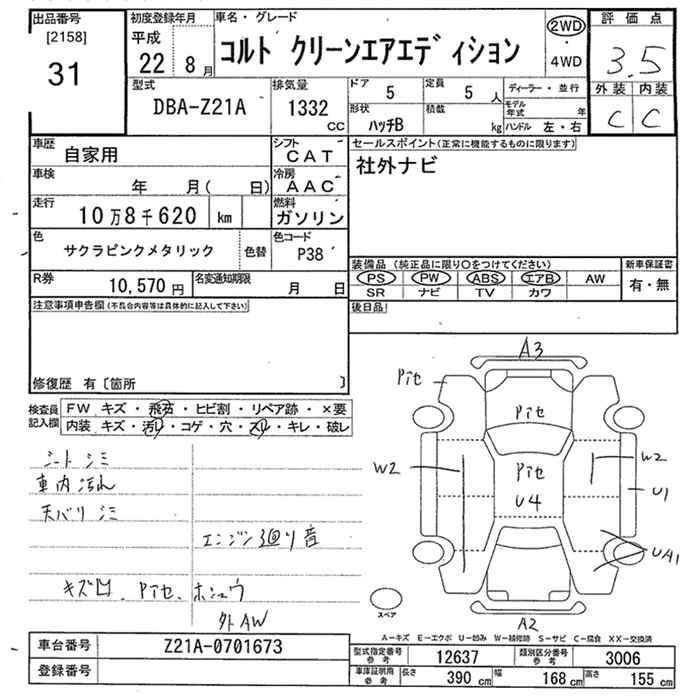 出品番号
[2158]
31
初度登録年月
平成
22 8月
車名・グレード
コルト クリーンエアエディション
2WD
・
4WD
評価点
3.5
外装 内装
C C
型式
DBA-Z21A
排気量
1332
CC
ドア 5
定員 5 人
形状 ハッチB
積載 kg
ディーラー・並行
モデル年式 年
ハンドル 左・右
車歴 自家用
シフト CAT
セールスポイント(正常に機能するものに限ります)
社外ナビ
車検 年 月( 日)
冷房 AAC
走行 10万8千620 km
燃料 ガソリン
色 サクラピンクメタリック 色替
色コード P38
装備品(純正品に限り○をつけてください)
PS PW ABS エアB AW
SR ナビ TV カワ
新車保証書
有・無
R券 10,570円
名変通知期限 月 日
後日品
注意事項申告欄(不具合内容等は具体的に記入して下さい)
修復歴 有〔箇所 〕
検査員記入欄
FW キズ・飛石・ヒビ割・リペア跡・×要
内装 キズ・汚レ・コゲ・穴・スレ・キレ・破レ
シートシミ
車内汚れ
天バリシミ
エンジン廻り音
キズ凹、Pイセ、ホシュウ
外AW
A3
Pイセ
Pイセ
W2
Pイセ
U4
W2
U1
UA1
スペア
A2
A-キズ E-エクボ U-凹み W-補修跡 S-サビ C-腐食 XX-交換済
車台番号 Z21A-0701673
登録番号
型式指定番号参考 12637
類別区分番号参考 3006
車庫証明用参考
長さ 390 cm
幅 168 cm
高さ 155 cm